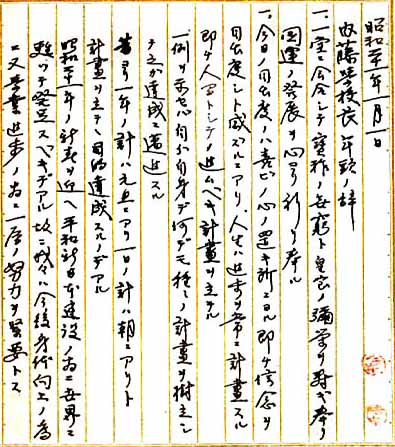 昭和二十一年一月一日
内藤学校長年頭ノ辞
一、一堂ニ会合シテ宝祚ノ無窮ト皇室ノ彌栄ヲ寿ギ奉リ
国運ノ発展ヲ心ヨリ祈リ奉ル
一、今日ノ目出度ノハ喜ビノ心ノ置キ所ニヨル即チ信念ヲ
目出度シト感ズルニアリ、人生ハ進歩ヲ常ニ計画スル
即チ人トシテノ進ムベキ計画ヲ立テル
一例ヲ示セバ自分自身デ何デモ種々ノ計画ヲ樹立シ
テ之ガ達成ニ邁進スル
昔ヨリ一年ノ計ハ元旦ニアリ一日ノ計ハ朝ニアリト
計画ヲ立テ、目的達成スルノデアル
昭和二十一年ノ新春ヲ迎ヘ平和新日本建設ノ為ニ世界ニ
ツテ発足スベキデアル故ニ我々ハ今後身体向上ノ為
ニ又学業進歩ノ為ニ一層ノ努力ヲ緊要トス